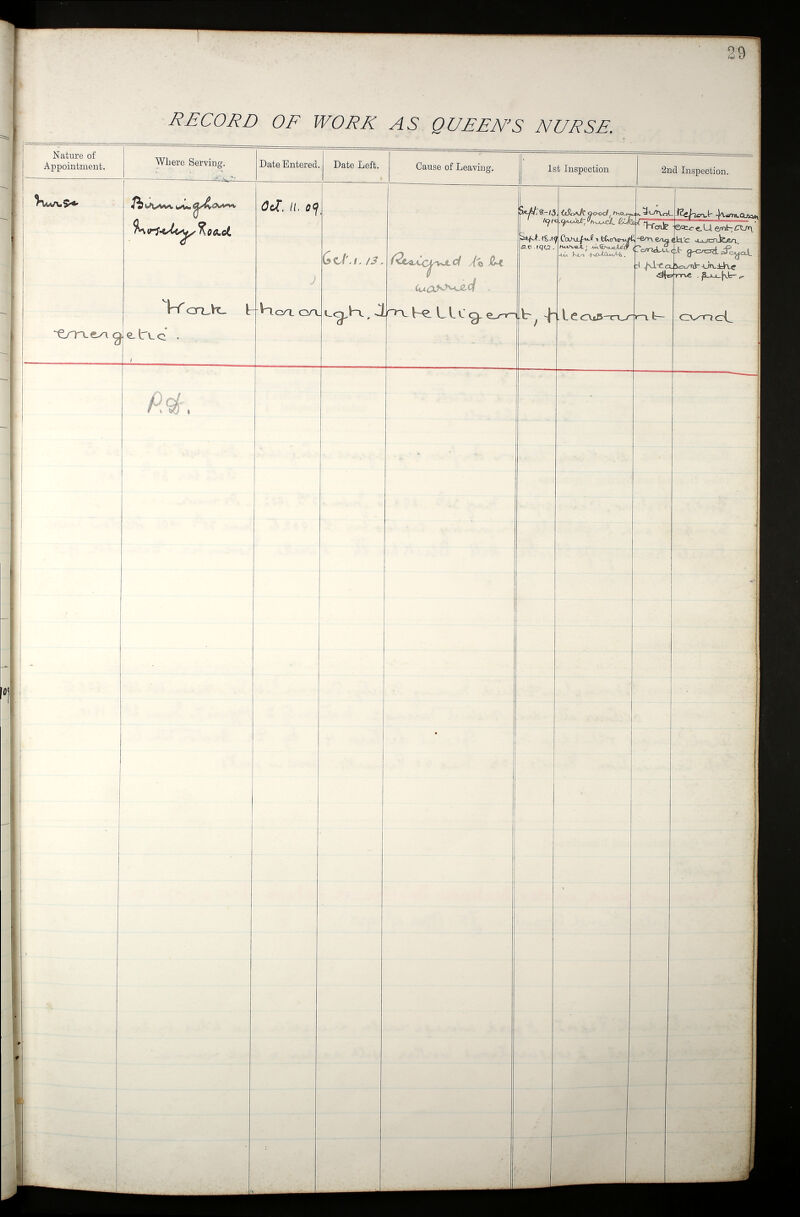 29
RECORD OF WORK AS QUEEN'S NURSE.
Nature of Appointment. Where Serving. Date Entered. Date Left. Cause of Leaving. 1st Inspection 2nd Inspection.
Nurse Birmingham Oct. 11. 09.
Moseley Road
Oct. 1. 13. Resigned to be married.
Sept. 8-13. Work good, manner
quiet, much liked
Sept. 15. Careful & thorough
nurse; interested
in her patients.
Final Report
Work excellent, an
energetic worker.
Conduct good. Loyal
& pleasant in the
Home.
Work thorough, Intelligent, pleasant and
energetic.
P.S.